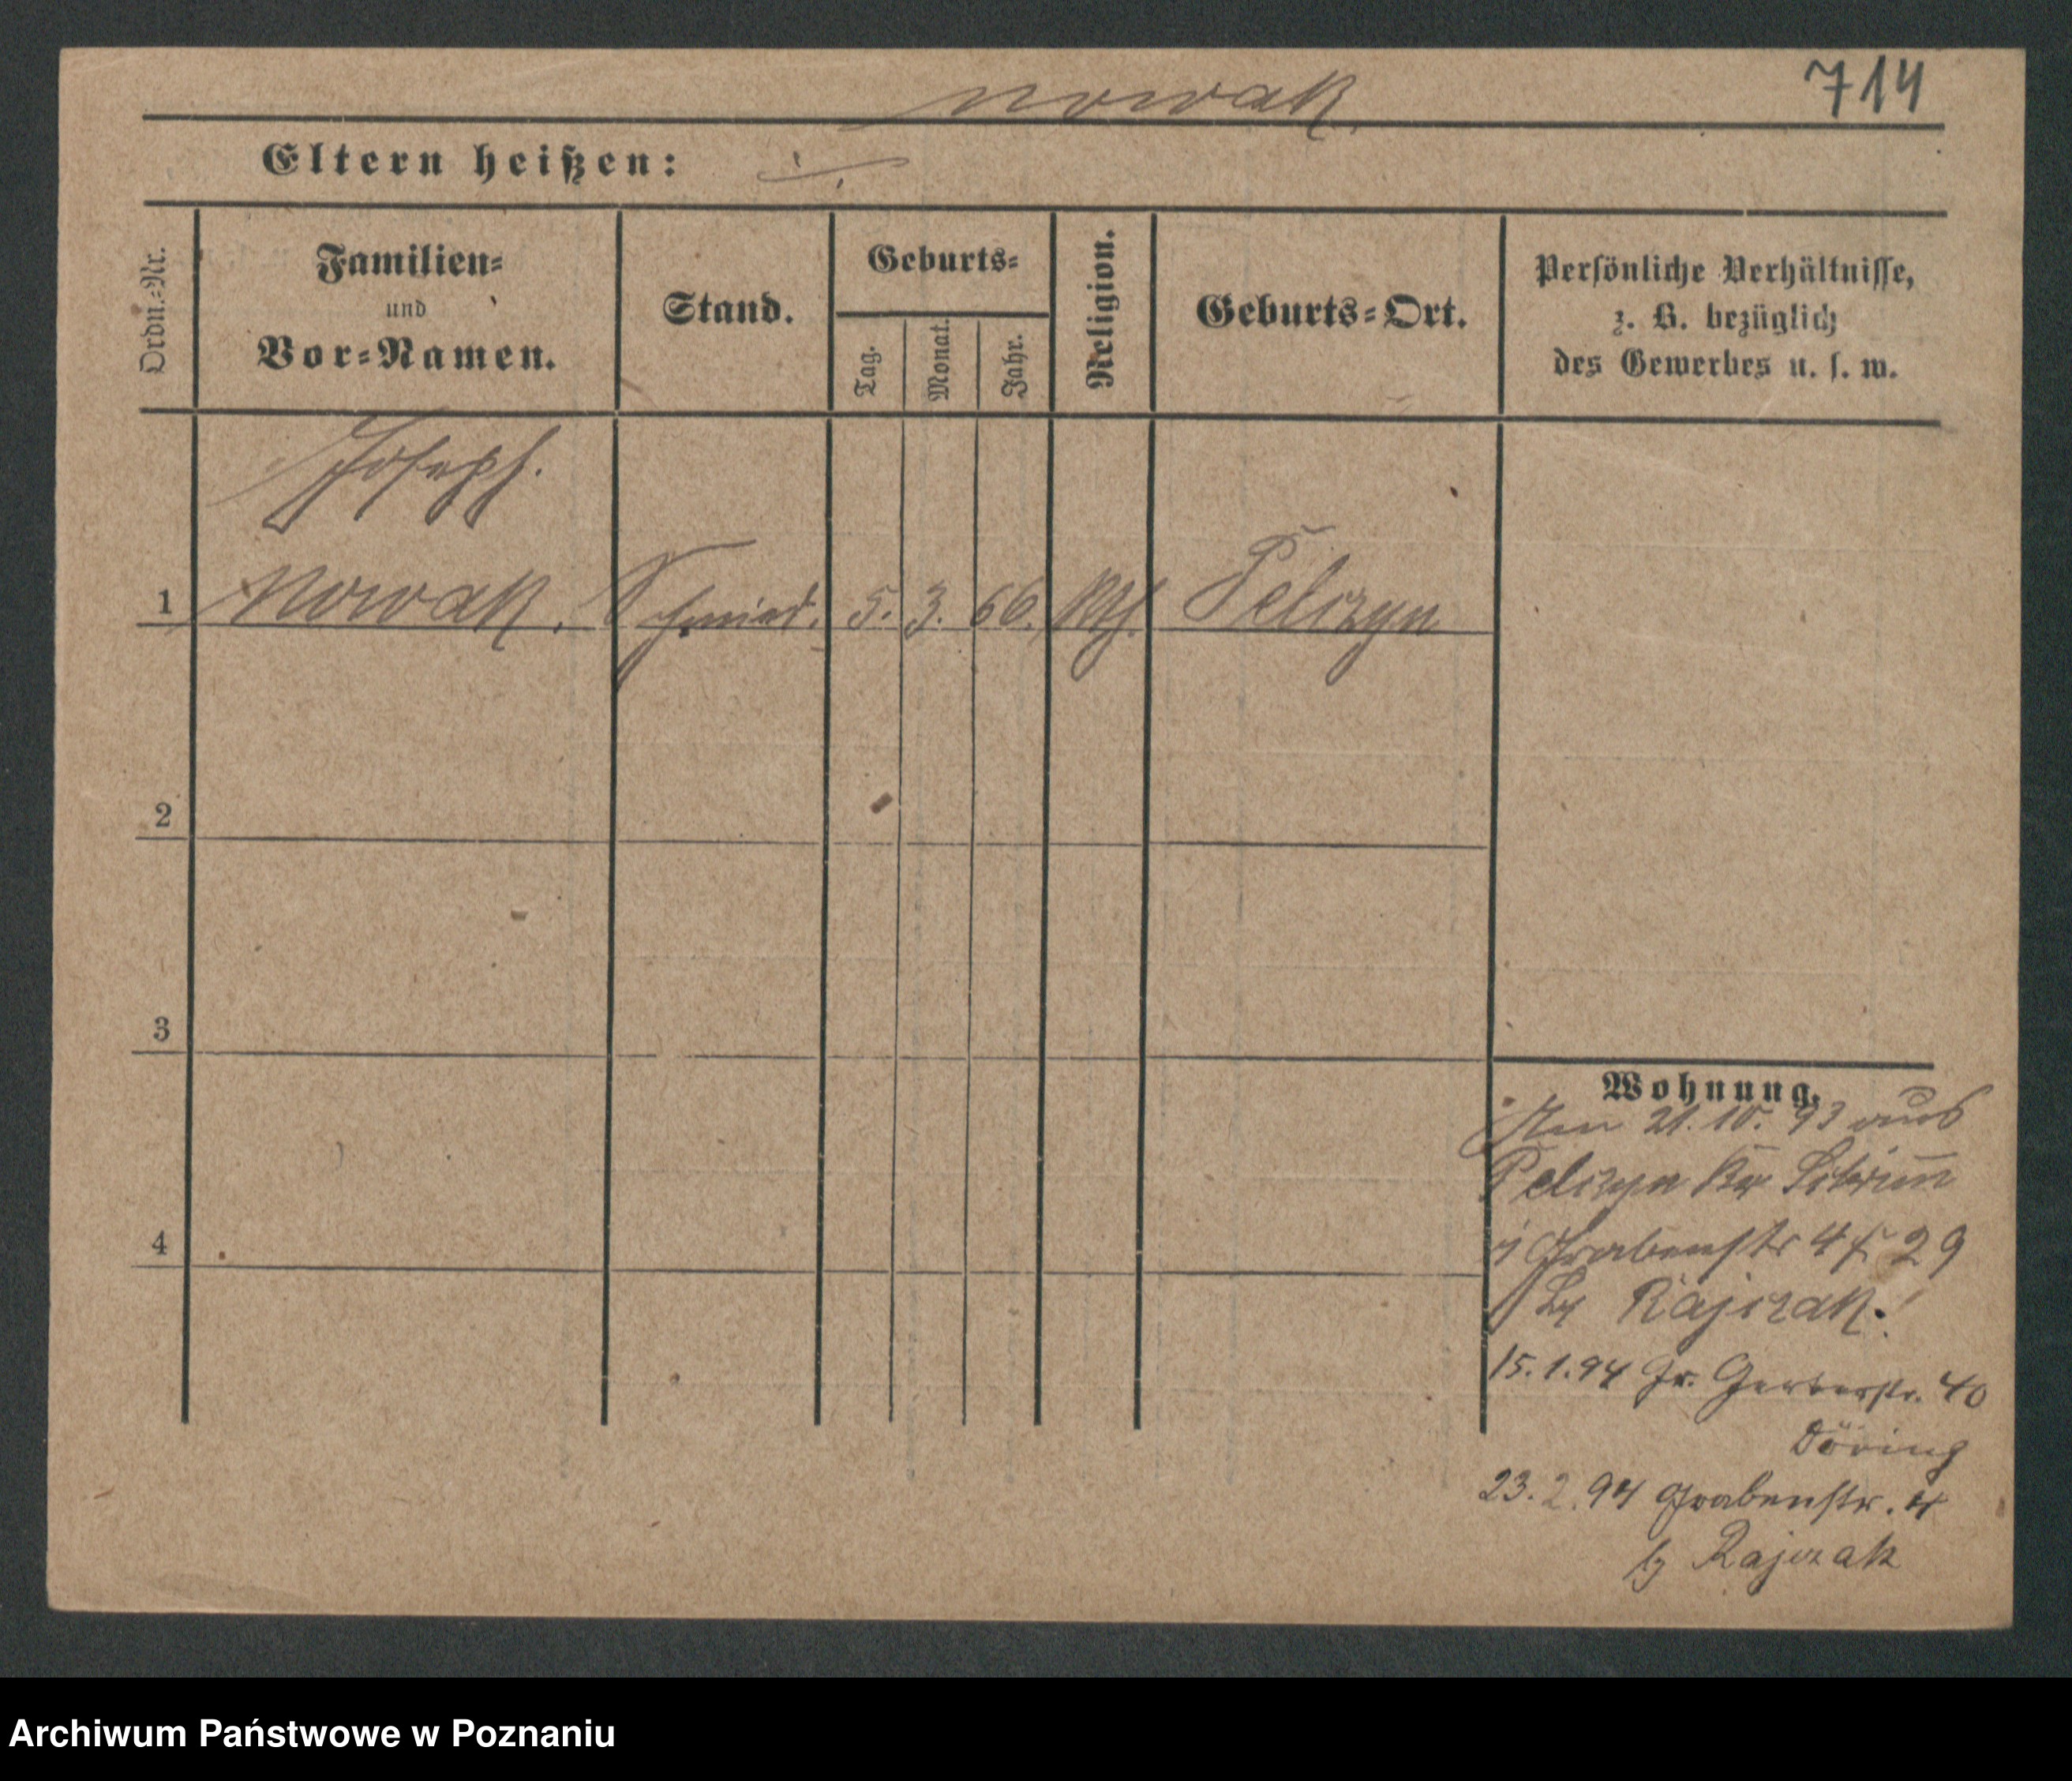 Nowak.
714
Eltern heißen: ./.
Ordn.=Nr.
Familien=
und
Vor=Namen.
Stand.
Geburts=
Tag.
Monat.
Jahr.
Religion.
Geburts=Ort.
Persönliche Verhältnisse,
z. B. bezüglich
des Gewerbes u. s. w.
Joseph.
1 Nowak. Schmied. 5. 3. 66. Kth. Pelczyn
2
3
4
Wohnung.
Am 21.10.93 aus
Pelczyn Kr Schrim̅
Grabenstr 4 29
by Rajczak.
15.1.94 Gr. Gerberstr. 40
Döring
23.2.94 Grabenstr. 4
by Rajczak
Archiwum Państwowe w Poznaniu